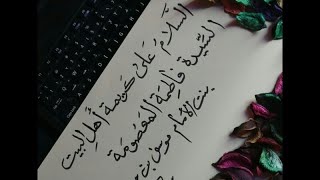 السَّلَامُ عَلَى كَرِيمَةِ أَهْلِ البَيْتِ
السَّيِّدَة فَاطِمَة المَعْصُومَة
بنت الإمَام موسى بن